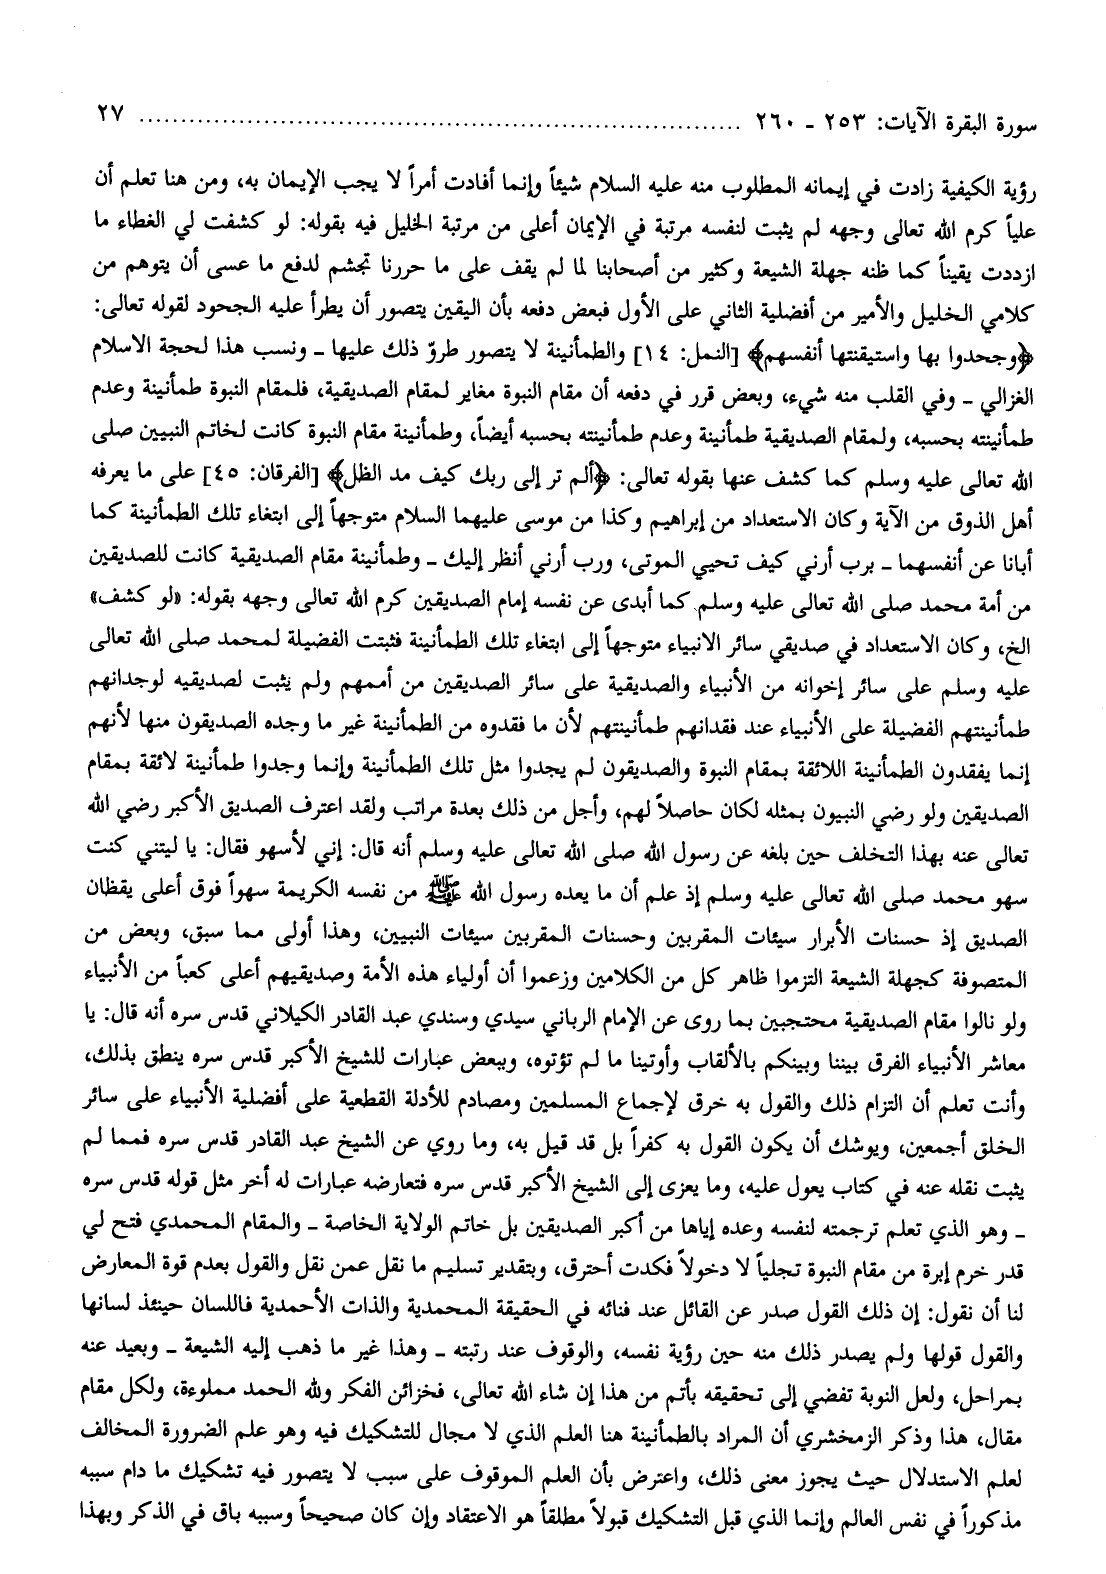 سورة البقرة الآيات: ٢٥٣ ـ ٢٦٠ ................................................................ ٢٧
رؤية الكيفية زادت في إيمانه المطلوب منه عليه السلام شيئاً وإنما أفادت أمراً لا يجب الإيمان به، ومن هنا تعلم أن
علياً كرم الله تعالى وجهه لم يثبت لنفسه مرتبة في الإيمان أعلى من مرتبة الخليل فيه بقوله: لو كشفت لي الغطاء ما
ازددت يقيناً كما ظنه جهلة الشيعة وكثير من أصحابنا لما لم يقف على ما حررنا تجشم لدفع ما عسى أن يتوهم من
كلامي الخليل والأمير من أفضلية الثاني على الأول فبعض دفعه بأن اليقين يتصور أن يطرأ عليه الجحود لقوله تعالى:
﴿وجحدوا بها واستيقنتها أنفسهم﴾ [النمل: ١٤] والطمأنينة لا يتصور طروّ ذلك عليها ـ ونسب هذا لحجة الاسلام
الغزالي ـ وفي القلب منه شيء، وبعض قرر في دفعه أن مقام النبوة مغاير لمقام الصديقية، فلمقام النبوة طمأنينة وعدم
طمأنينته بحسبه، ولمقام الصديقية طمأنينة وعدم طمأنينته بحسبه أيضاً، وطمأنينة مقام النبوة كانت لخاتم النبيين صلى
الله تعالى عليه وسلم كما كشف عنها بقوله تعالى: ﴿ألم تر إلى ربك كيف مد الظل﴾ [الفرقان: ٤٥] على ما يعرفه
أهل الذوق من الآية وكان الاستعداد من إبراهيم وكذا من موسى عليهما السلام متوجهاً إلى ابتغاء تلك الطمأنينة كما
أبانا عن أنفسهما ـ برب أرني كيف تحيي الموتى، ورب أرني أنظر إليك ـ وطمأنينة مقام الصديقية كانت للصديقين
من أمة محمد صلى الله تعالى عليه وسلم كما أبدى عن نفسه إمام الصديقين كرم الله تعالى وجهه بقوله: «لو كشف»
الخ، وكان الاستعداد في صديقي سائر الانبياء متوجهاً إلى ابتغاء تلك الطمأنينة فثبتت الفضيلة لمحمد صلى الله تعالى
عليه وسلم على سائر إخوانه من الأنبياء والصديقية على سائر الصديقين من أممهم ولم يثبت لصديقيه لوجدانهم
طمأنينتهم الفضيلة على الأنبياء عند فقدانهم طمأنينتهم لأن ما فقدوه من الطمأنينة غير ما وجده الصديقون منها لأنهم
إنما يفقدون الطمأنينة اللائقة بمقام النبوة والصديقون لم يجدوا مثل تلك الطمأنينة وإنما وجدوا طمأنينة لائقة بمقام
الصديقين ولو رضي النبيون بمثله لكان حاصلاً لهم، وأجل من ذلك بعدة مراتب ولقد اعترف الصديق الأكبر رضي الله
تعالى عنه بهذا التخلف حين بلغه عن رسول الله صلى الله تعالى عليه وسلم أنه قال: إني لأسهو فقال: يا ليتني كنت
سهو محمد صلى الله تعالى عليه وسلم إذ علم أن ما يعده رسول الله ﷺ من نفسه الكريمة سهواً فوق أعلى يقظان
الصديق إذ حسنات الأبرار سيئات المقربين وحسنات المقربين سيئات النبيين، وهذا أولى مما سبق، وبعض من
المتصوفة كجهلة الشيعة التزموا ظاهر كل من الكلامين وزعموا أن أولياء هذه الأمة وصديقيهم أعلى كعباً من الأنبياء
ولو نالوا مقام الصديقية محتجبين بما روى عن الإمام الرباني سيدي وسندي عبد القادر الكيلاني قدس سره أنه قال: يا
معاشر الأنبياء الفرق بيننا وبينكم بالألقاب وأوتينا ما لم تؤتوه، وببعض عبارات للشيخ الأكبر قدس سره ينطق بذلك،
وأنت تعلم أن التزام ذلك والقول به خرق لإجماع المسلمين ومصادم للأدلة القطعية على أفضلية الأنبياء على سائر
الخلق أجمعين، ويوشك أن يكون القول به كفراً بل قد قيل به، وما روي عن الشيخ عبد القادر قدس سره فمما لم
يثبت نقله عنه في كتاب يعول عليه، وما يعزى إلى الشيخ الأكبر قدس سره فتعارضه عبارات له أخر مثل قوله قدس سره
ـ وهو الذي تعلم ترجمته لنفسه وعده إياها من أكبر الصديقين بل خاتم الولاية الخاصة ـ والمقام المحمدي فتح لي
قدر خرم إبرة من مقام النبوة تجلياً لا دخولاً فكدت أحترق، وبتقدير تسليم ما نقل عمن نقل والقول بعدم قوة المعارض
لنا أن نقول: إن ذلك القول صدر عن القائل عند فنائه في الحقيقة المحمدية والذات الأحمدية فاللسان حينئذ لسانها
والقول قولها ولم يصدر ذلك منه حين رؤية نفسه، والوقوف عند رتبته ـ وهذا غير ما ذهب إليه الشيعة ـ وبعيد عنه
بمراحل، ولعل النوبة تفضي إلى تحقيقه بأتم من هذا إن شاء الله تعالى، فخزائن الفكر ولله الحمد مملوءة، ولكل مقام
مقال، هذا وذكر الزمخشري أن المراد بالطمأنينة هنا العلم الذي لا مجال للتشكيك فيه وهو علم الضرورة المخالف
لعلم الاستدلال حيث يجوز معنى ذلك، واعترض بأن العلم الموقوف على سبب لا يتصور فيه تشكيك ما دام سببه
مذكوراً في نفس العالم وإنما الذي قبل التشكيك قبولاً مطلقاً هو الاعتقاد وإن كان صحيحاً وسببه باق في الذكر وبهذا